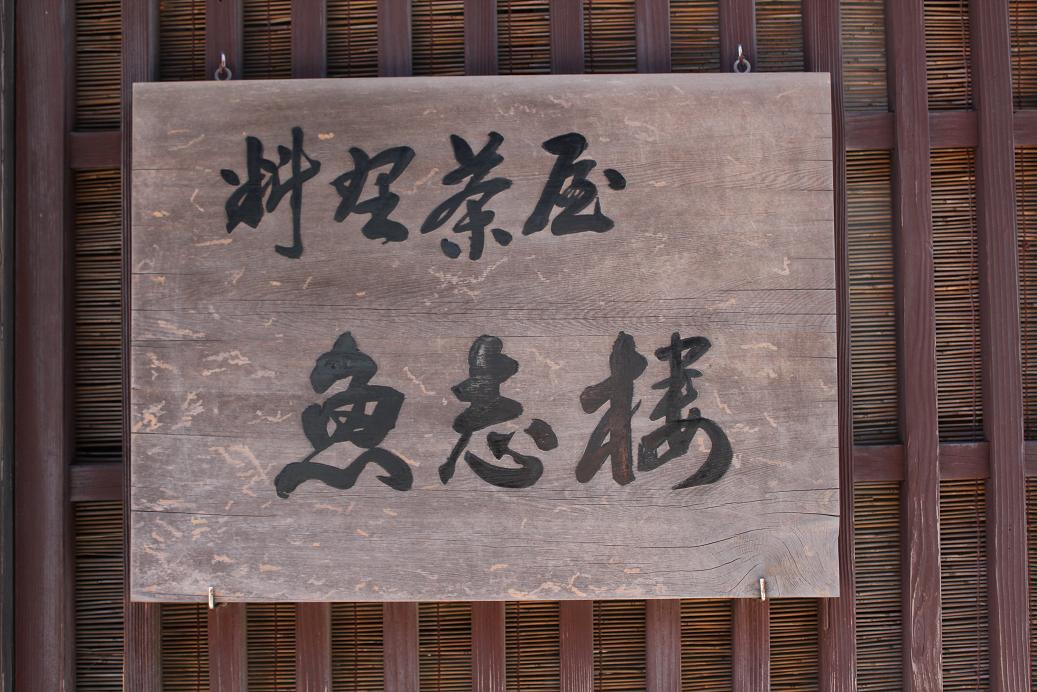 料理茶屋
魚志楼